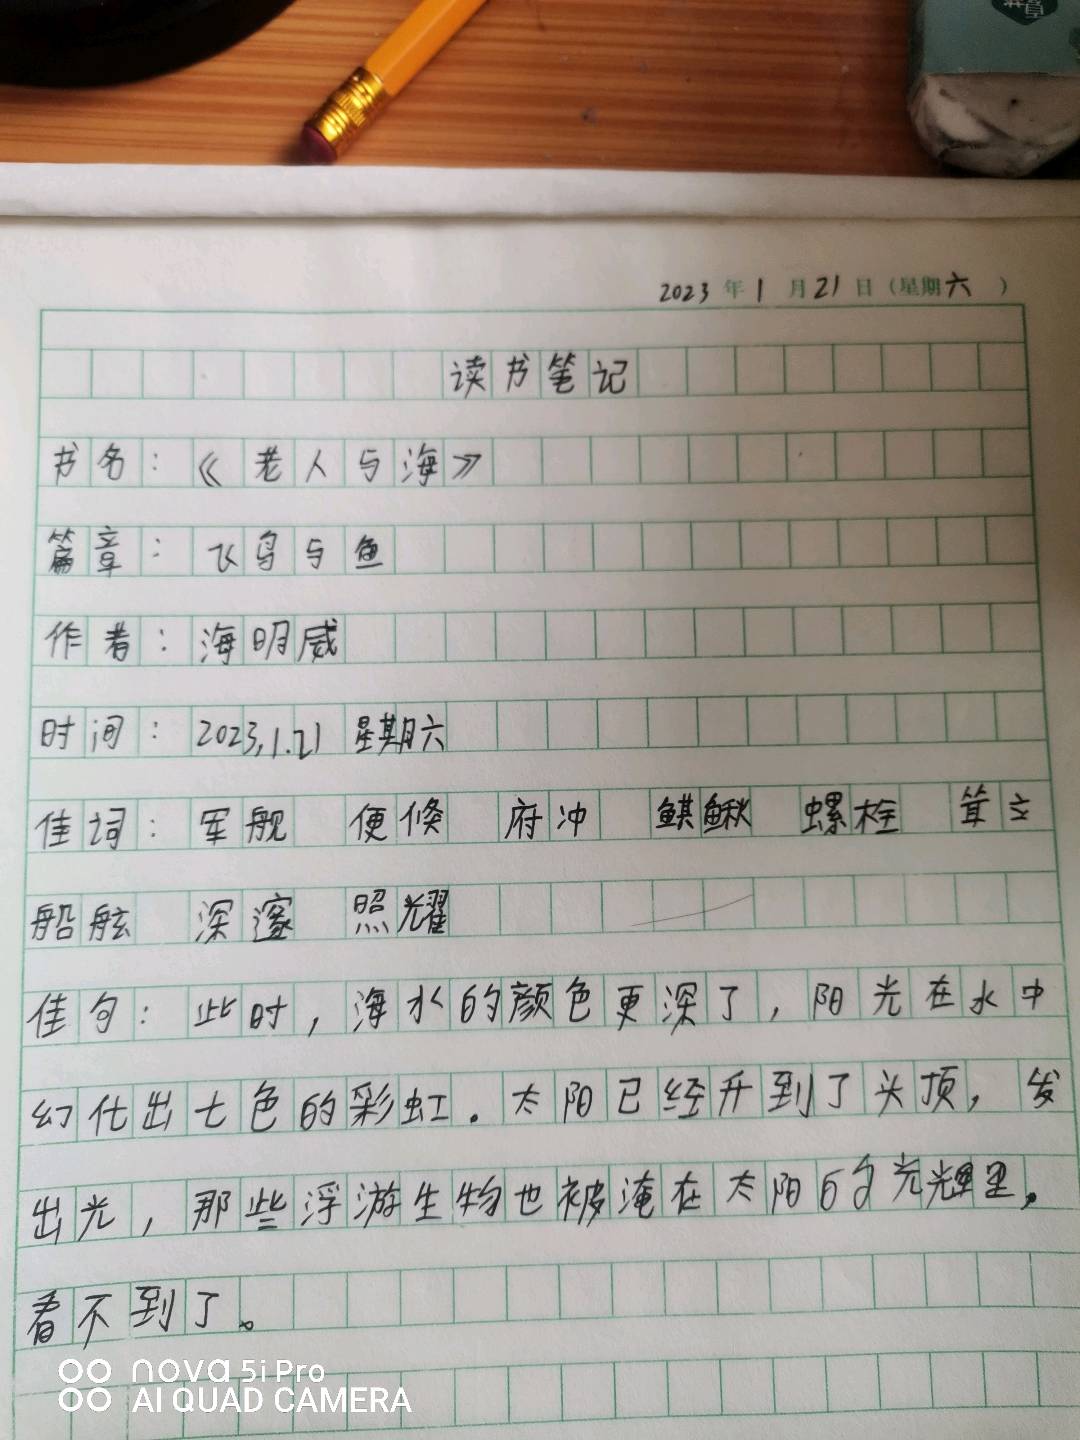 2023年1月21日（星期六）
读书笔记
书名：《老人与海》
篇章：飞鸟与鱼
作者：海明威
时间：2023.1.21 星期六
佳词：军舰 便倏 府冲 鲯鳅 螺栓 耸立
船舷 深邃 照耀
佳句：此时，海水的颜色更深了，阳光在水中
幻化出七色的彩虹.太阳已经升到了头顶，发
出光，那些浮游生物也被淹在太阳的光耀里，
看不到了。
nova 5i Pro
AI QUAD CAMERA